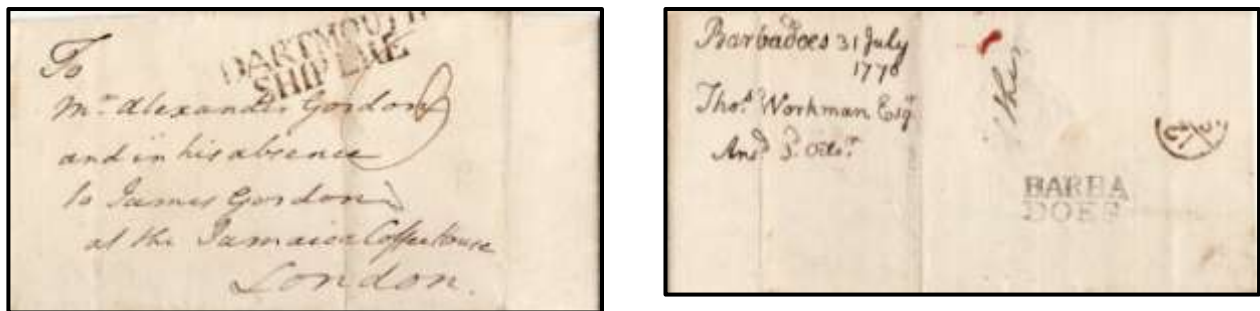 DARTMOUTH
SHIP LRE
To
Mr. Alexander Gordon
and in his absence
to James Gordon
at the Jamaica Coffee House
London.
Barbadoes 31 July
1776
Thos. Workman Esqr
Ansd 3. Octr.
BARBA
DOES